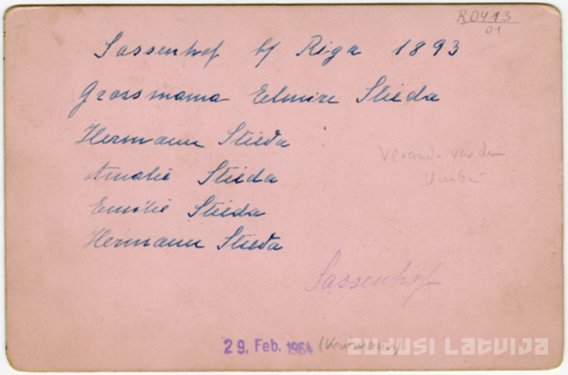 R0413
01
Sassenhof b/ Riga 1893
Grossmama Elmire Stieda
Hermann Stieda
Amalie Stieda
Emilie Stieda
Hermann Stieda
Veranda vor dem
Sassenhof
29. Feb. 1964
ZUDUSI LATVIJA